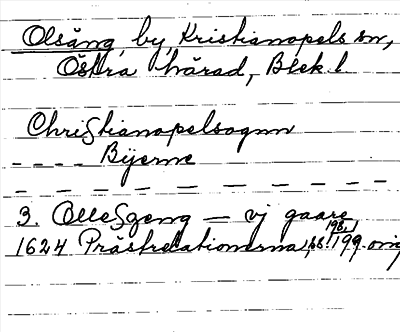 Olsäng, by, Kristianopels sn,
Östra härad, Blek. l.
Christianopelsognn
- - - - Bÿerne
- - - - - - - - - - - -
3. OlleSgeng — vj gaare
198,
1624 Prästrelationerna, ss. 199 orig